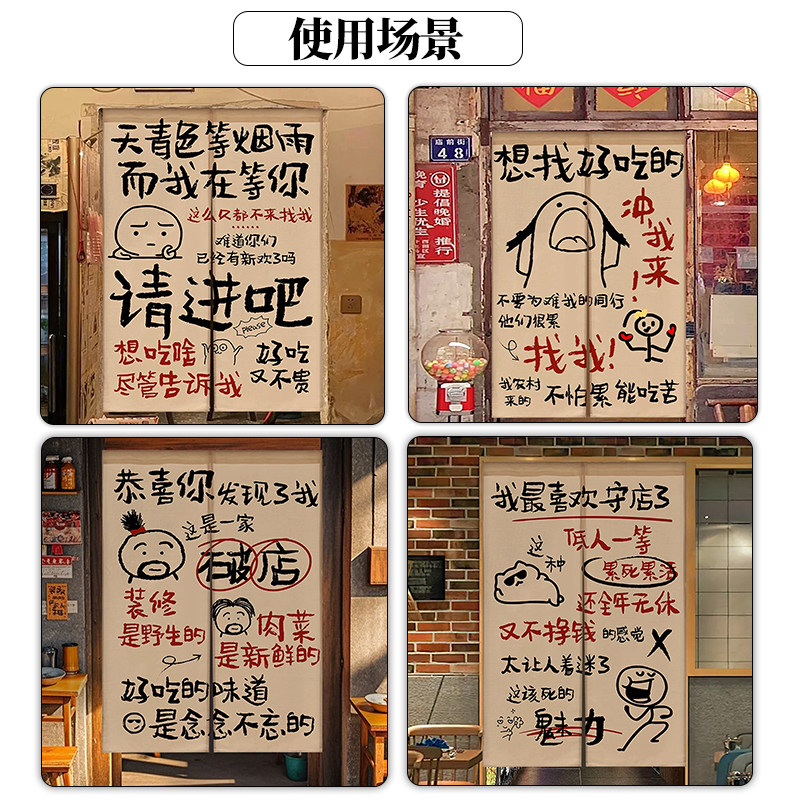 使用场景
天青色等烟雨
而我在等你
这么久都不来找我
……
难道你们
已经有新欢了吗
请进吧
please
想吃啥
尽管告诉我
好吃
又不贵
庙前街
48
提倡晚婚
推行
晚育
少生优生
想找好吃的
冲我来!
不要为难我的同行
他们很累
找我!
我农村来的
不怕累能吃苦
恭喜你发现了我
这是一家
破店
装修
是野生的
肉菜
是新鲜的
好吃的味道
是念念不忘的
我最喜欢守店了
这种
低人一等
累死累活
还全年无休
又不挣钱的感觉
太让人着迷了
这该死的
魅力